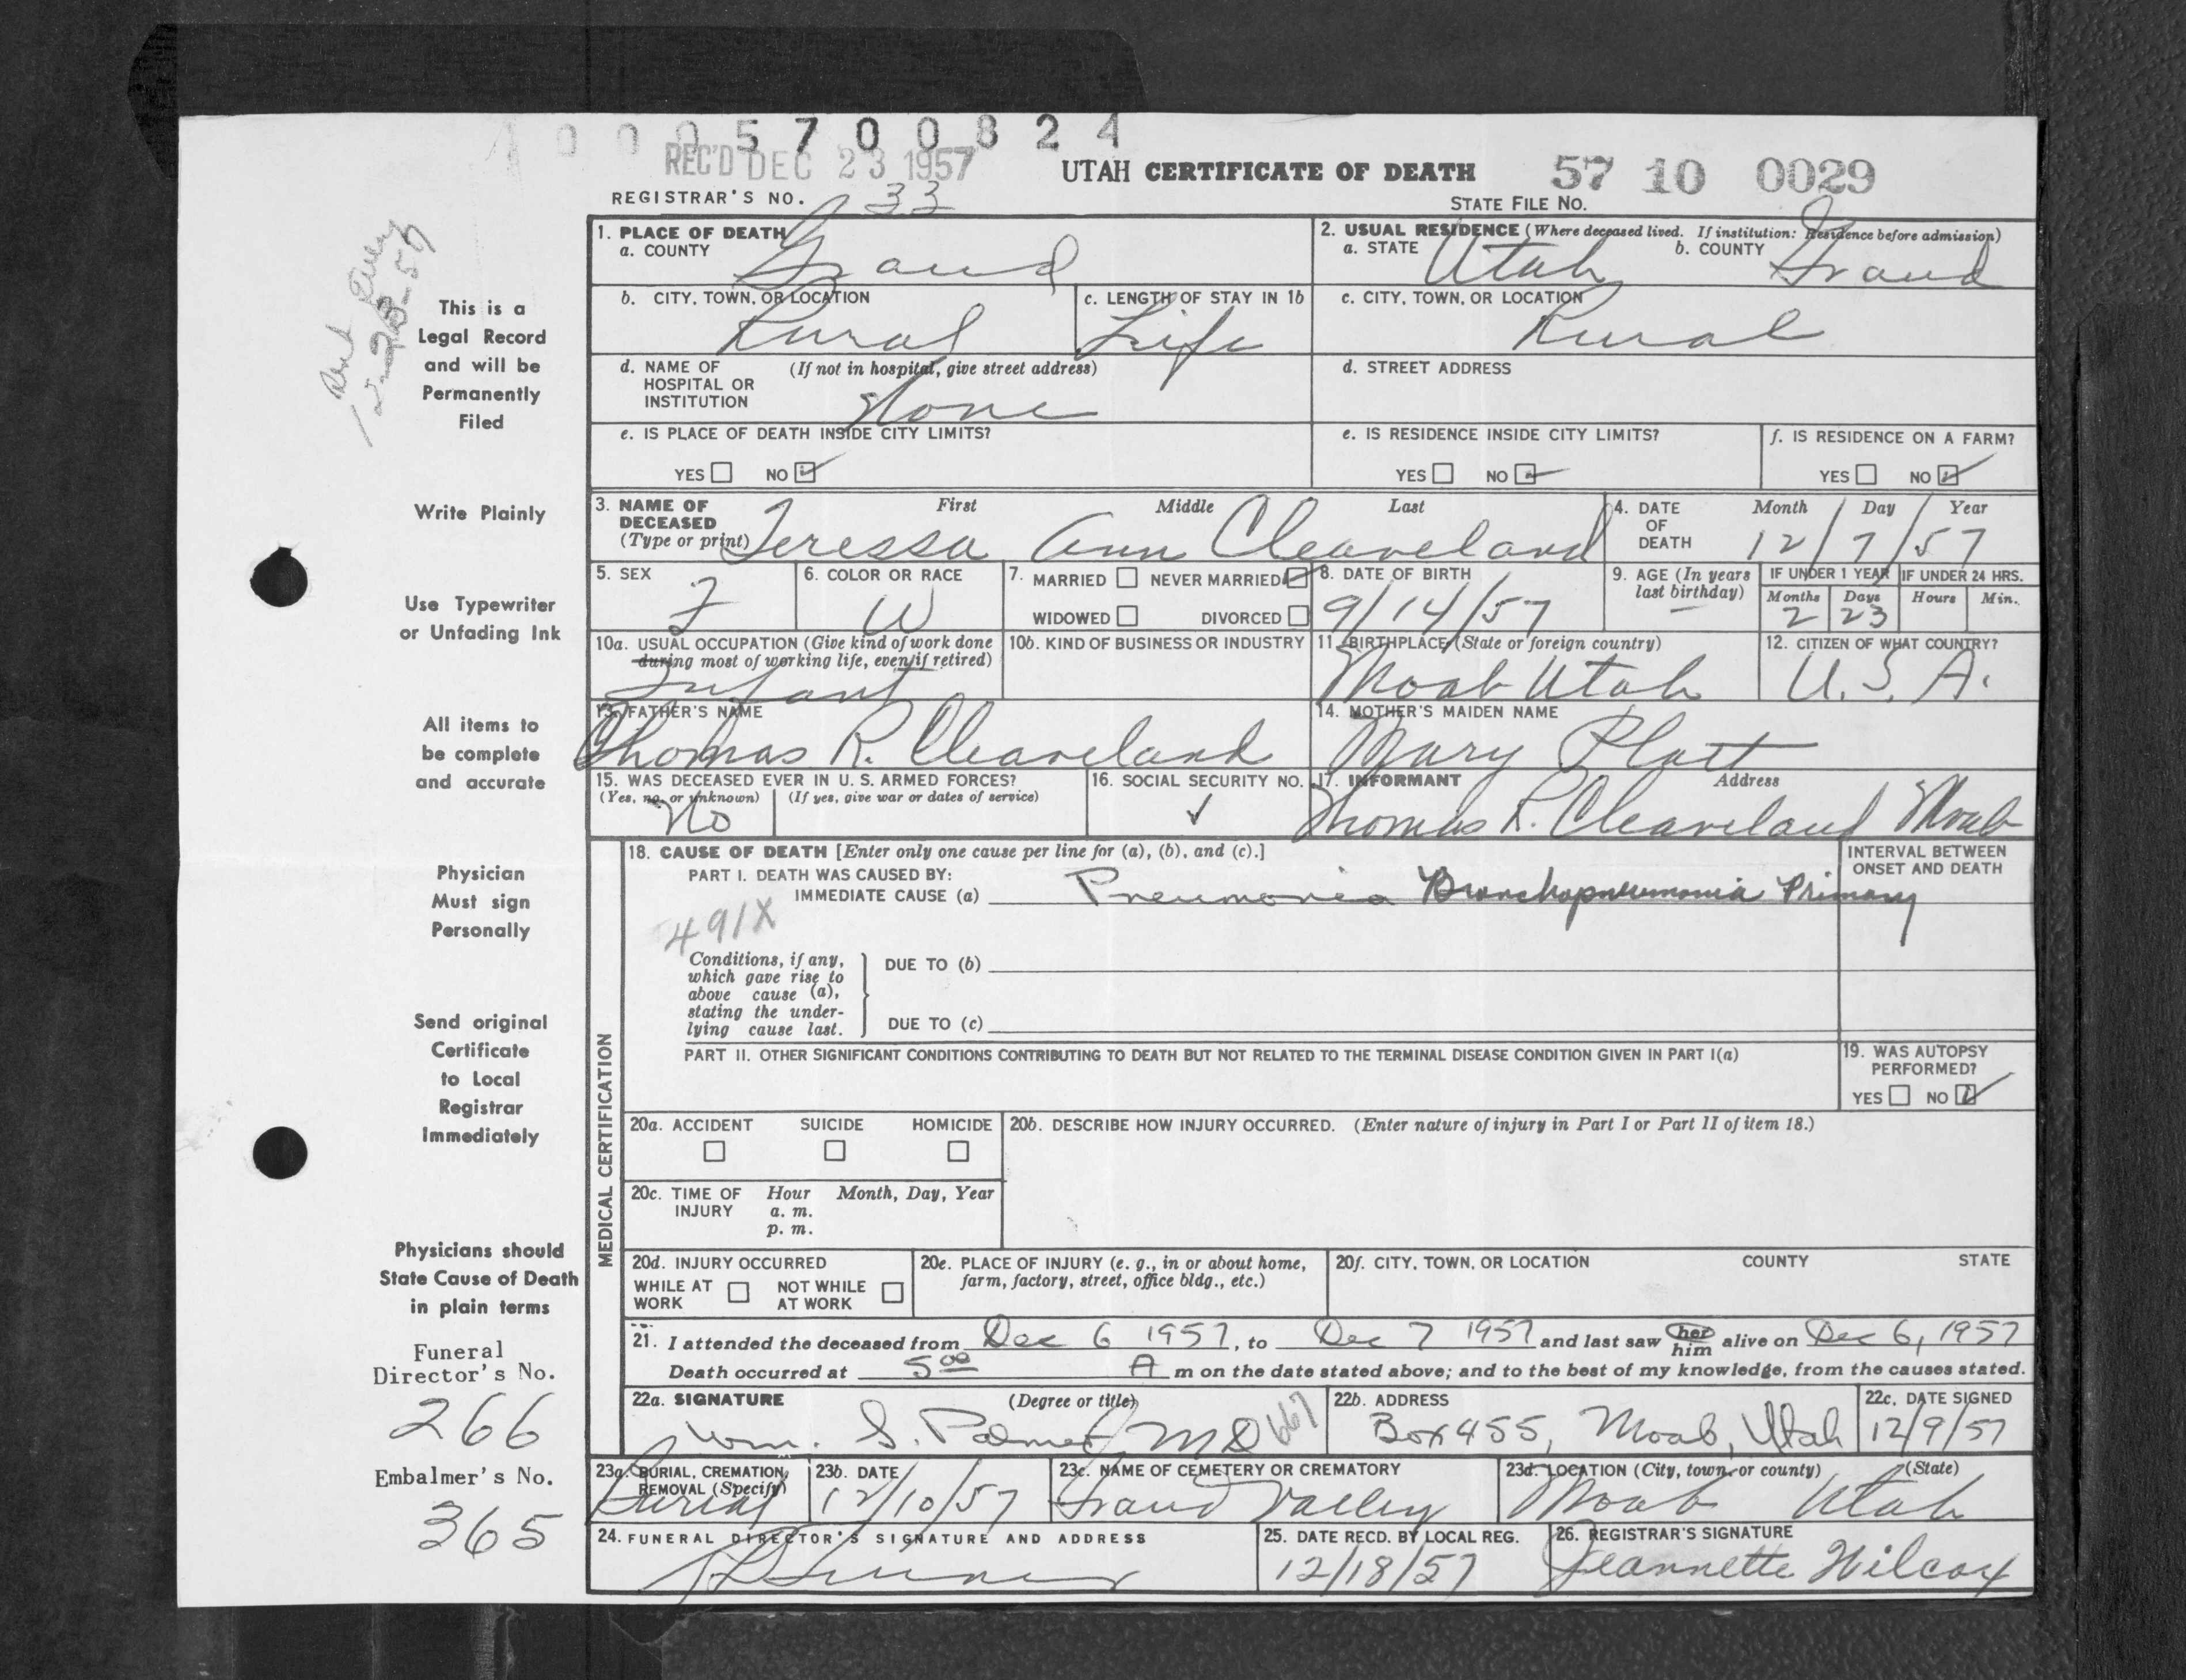 0 0 0 5 7 0 0 8 2 4
REC'D DEC 23 1957
UTAH CERTIFICATE OF DEATH
57 10 0029
REGISTRAR'S NO. 33
STATE FILE NO.
1. PLACE OF DEATH
a. COUNTY Grand
2. USUAL RESIDENCE (Where deceased lived. If institution: Residence before admission)
a. STATE Utah b. COUNTY Grand
b. CITY, TOWN, OR LOCATION Rural
c. LENGTH OF STAY IN 1b Life
c. CITY, TOWN, OR LOCATION Rural
d. NAME OF HOSPITAL OR INSTITUTION (If not in hospital, give street address) None
d. STREET ADDRESS
e. IS PLACE OF DEATH INSIDE CITY LIMITS?
YES NO
e. IS RESIDENCE INSIDE CITY LIMITS?
YES NO
f. IS RESIDENCE ON A FARM?
YES NO
3. NAME OF DECEASED (Type or print) First Middle Last
Teressa Ann Cleaveland
4. DATE OF DEATH Month Day Year
12/7/57
5. SEX F
6. COLOR OR RACE W
7. MARRIED NEVER MARRIED
WIDOWED DIVORCED
8. DATE OF BIRTH 9/14/57
9. AGE (In years last birthday) –
IF UNDER 1 YEAR Months 2 Days 23
IF UNDER 24 HRS. Hours Min.
10a. USUAL OCCUPATION (Give kind of work done during most of working life, even if retired)
Infant
10b. KIND OF BUSINESS OR INDUSTRY
11. BIRTHPLACE (State or foreign country)
Moab Utah
12. CITIZEN OF WHAT COUNTRY?
U.S.A.
13. FATHER'S NAME
Thomas R. Cleaveland
14. MOTHER'S MAIDEN NAME
Mary Platt
15. WAS DECEASED EVER IN U. S. ARMED FORCES?
(Yes, no, or unknown) (If yes, give war or dates of service)
No
16. SOCIAL SECURITY NO.
✓
17. INFORMANT Address
Thomas R. Cleaveland Moab
MEDICAL CERTIFICATION
18. CAUSE OF DEATH [Enter only one cause per line for (a), (b), and (c).]
INTERVAL BETWEEN ONSET AND DEATH
PART I. DEATH WAS CAUSED BY:
IMMEDIATE CAUSE (a) Pneumonia Bronchopneumonia Primary
491X
Conditions, if any, which gave rise to above cause (a), stating the underlying cause last.
DUE TO (b)
DUE TO (c)
PART II. OTHER SIGNIFICANT CONDITIONS CONTRIBUTING TO DEATH BUT NOT RELATED TO THE TERMINAL DISEASE CONDITION GIVEN IN PART I(a)
19. WAS AUTOPSY PERFORMED?
YES NO
20a. ACCIDENT SUICIDE HOMICIDE
20b. DESCRIBE HOW INJURY OCCURRED. (Enter nature of injury in Part I or Part II of item 18.)
20c. TIME OF INJURY Hour Month, Day, Year
a. m.
p. m.
20d. INJURY OCCURRED
WHILE AT WORK NOT WHILE AT WORK
20e. PLACE OF INJURY (e. g., in or about home, farm, factory, street, office bldg., etc.)
20f. CITY, TOWN, OR LOCATION COUNTY STATE
21. I attended the deceased from Dec 6 1957, to Dec 7 1957 and last saw her him alive on Dec 6, 1957
Death occurred at 5 00 A m on the date stated above; and to the best of my knowledge, from the causes stated.
22a. SIGNATURE (Degree or title)
Wm. S. Palmer MD
22b. ADDRESS
Box 455, Moab, Utah
22c. DATE SIGNED
12/9/57
23a. BURIAL, CREMATION, REMOVAL (Specify)
Burial
23b. DATE
12/10/57
23c. NAME OF CEMETERY OR CREMATORY
Grand Valley
23d. LOCATION (City, town, or county) (State)
Moab Utah
24. FUNERAL DIRECTOR'S SIGNATURE AND ADDRESS
25. DATE RECD. BY LOCAL REG.
12/18/57
26. REGISTRAR'S SIGNATURE
Jeannette Wilcox
This is a
Legal Record
and will be
Permanently
Filed
Write Plainly
Use Typewriter
or Unfading Ink
All items to
be complete
and accurate
Physician
Must sign
Personally
Send original
Certificate
to Local
Registrar
Immediately
Physicians should
State Cause of Death
in plain terms
Funeral
Director's No.
266
Embalmer's No.
365